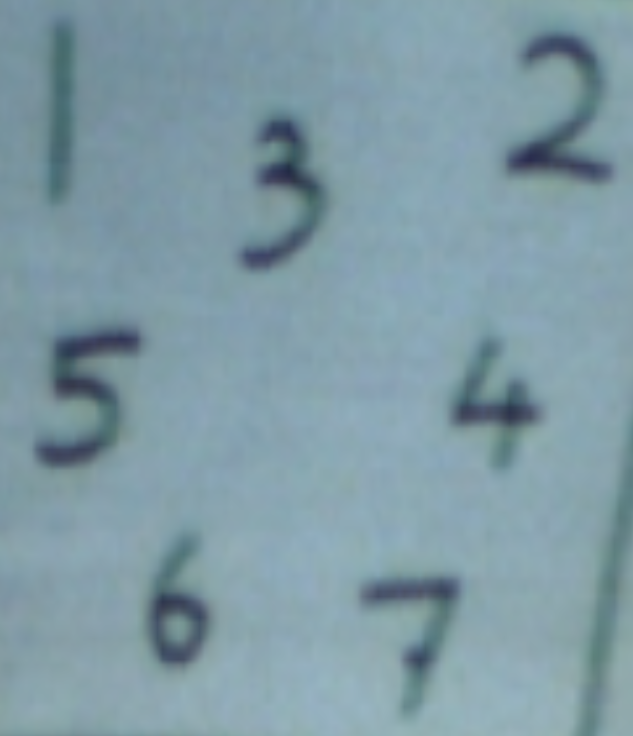 1 3 2
5 4
6 7